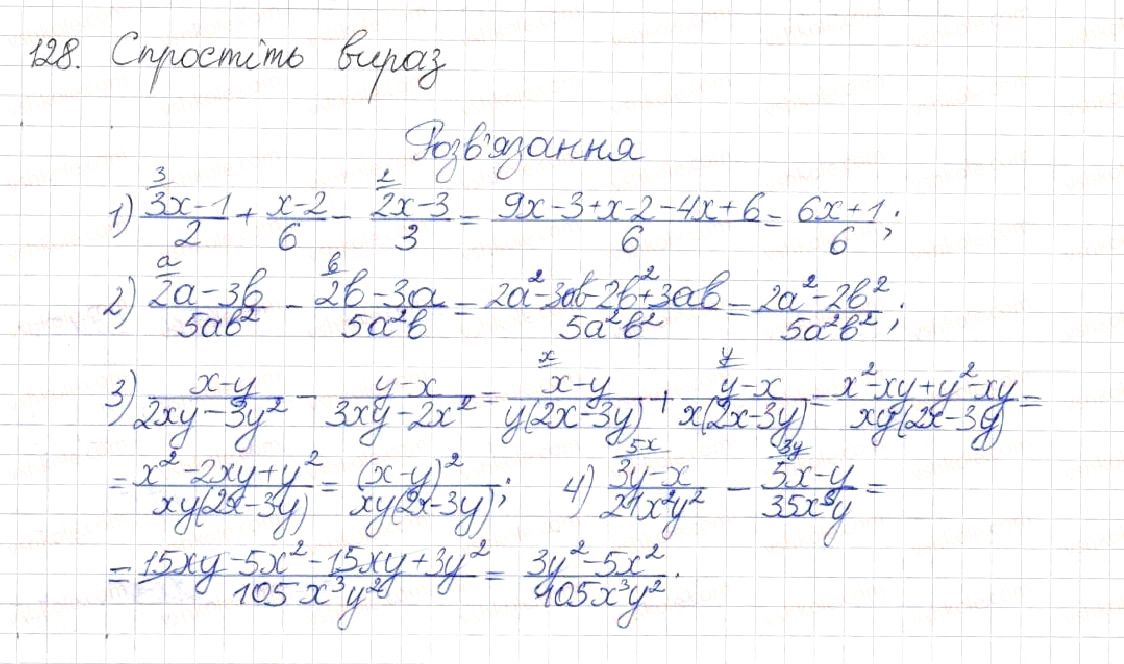 128. Спростіть вираз
Розв'язання
1) \frac{\overset{3}{3x-1}}{2} + \frac{x-2}{6} - \frac{\overset{2}{2x-3}}{3} = \frac{9x-3+x-2-4x+6}{6} = \frac{6x+1}{6};
2) \frac{\overset{a}{2a-3b}}{5ab^2} - \frac{\overset{b}{2b-3a}}{5a^2b} = \frac{2a^2-3ab-2b^2+3ab}{5a^2b^2} = \frac{2a^2-2b^2}{5a^2b^2};
3) \frac{x-y}{2xy-3y^2} - \frac{y-x}{3xy-2x^2} = \frac{\overset{x}{x-y}}{y(2x-3y)} + \frac{\overset{y}{y-x}}{x(2x-3y)} = \frac{x^2-xy+y^2-xy}{xy(2x-3y)} =
= \frac{x^2-2xy+y^2}{xy(2x-3y)} = \frac{(x-y)^2}{xy(2x-3y)}; 4) \frac{\overset{5x}{3y-x}}{21x^2y^2} - \frac{\overset{3y}{5x-y}}{35x^3y} =
= \frac{15xy-5x^2-15xy+3y^2}{105x^3y^2} = \frac{3y^2-5x^2}{105x^3y^2}.